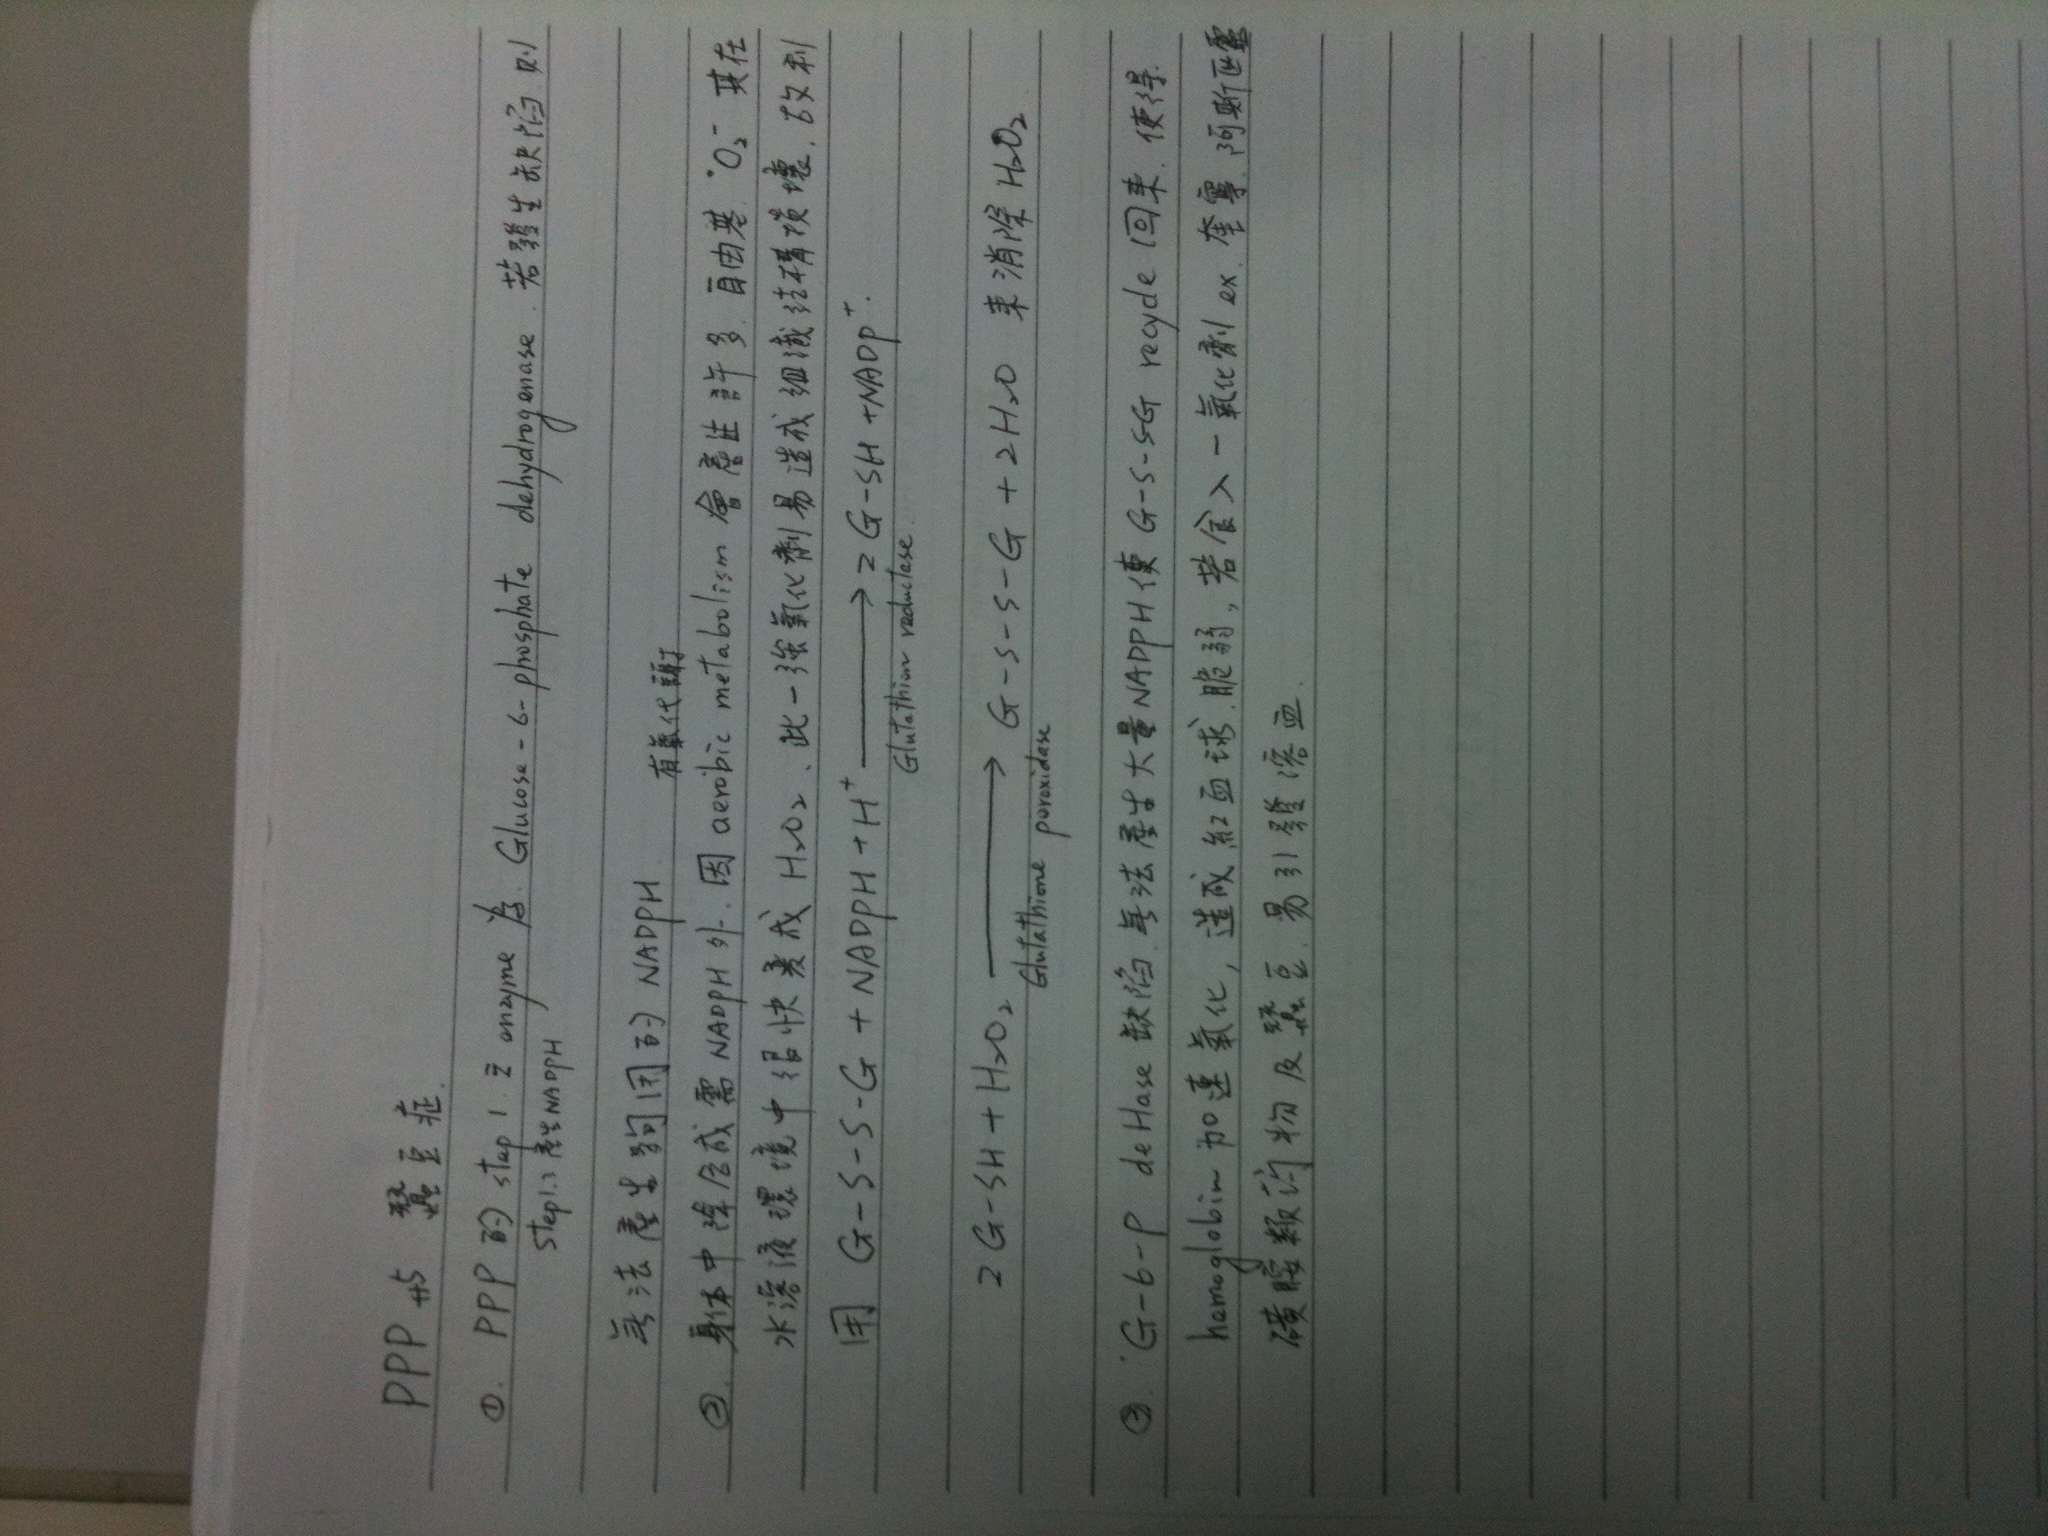 PPP 與 蠶豆症
①. PPP 的 step 1 之 enzyme 為 Glucose-6-phosphate dehydrogenase. 若發生缺陷. 則
step1.3 產生NADPH
無法產生夠用的 NADPH
有氧代謝
②. 身体中除合成需 NADPH 外. 因 aerobic metabolism 會產生許多 自由基 ·O₂⁻ 其在
水溶液環境中很快变成 H₂O₂、此一強氧化劑易造成細胞結構損壞. 故利
用 G-S-S-G + NADPH + H⁺ ⟶ 2G-SH + NADP⁺.
Glutathion reductase.
2G-SH + H₂O₂ ⟶ G-S-S-G + 2H₂O 来消除 H₂O₂
Glutathione peroxidase
③. G-6-P deHase 缺陷. 無法產生大量NADPH使 G-S-SG recycle 回来. 使得
hemoglobin 加速氧化, 造成 紅血球 脆弱, 若食入 一 氧化劑 ex. 奎寧. 阿斯匹靈
磺胺類药物 及 蠶豆. 易引發溶血.